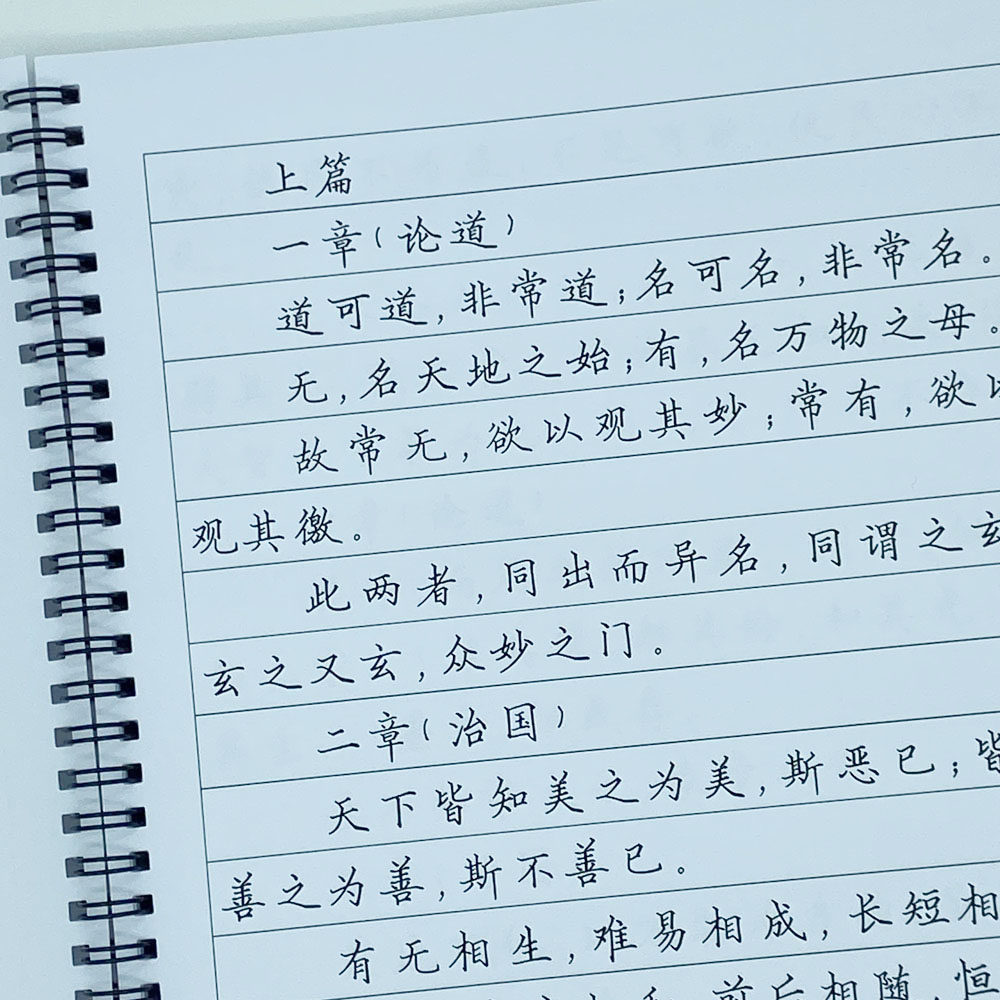 上篇
一章(论道)
道可道,非常道;名可名,非常名。
无,名天地之始;有,名万物之母。
故常无,欲以观其妙;常有,欲
观其徼。
此两者,同出而异名,同谓之玄
玄之又玄,众妙之门。
二章(治国)
天下皆知美之为美,斯恶已;皆
善之为善,斯不善已。
有无相生,难易相成,长短相
前后相随,恒